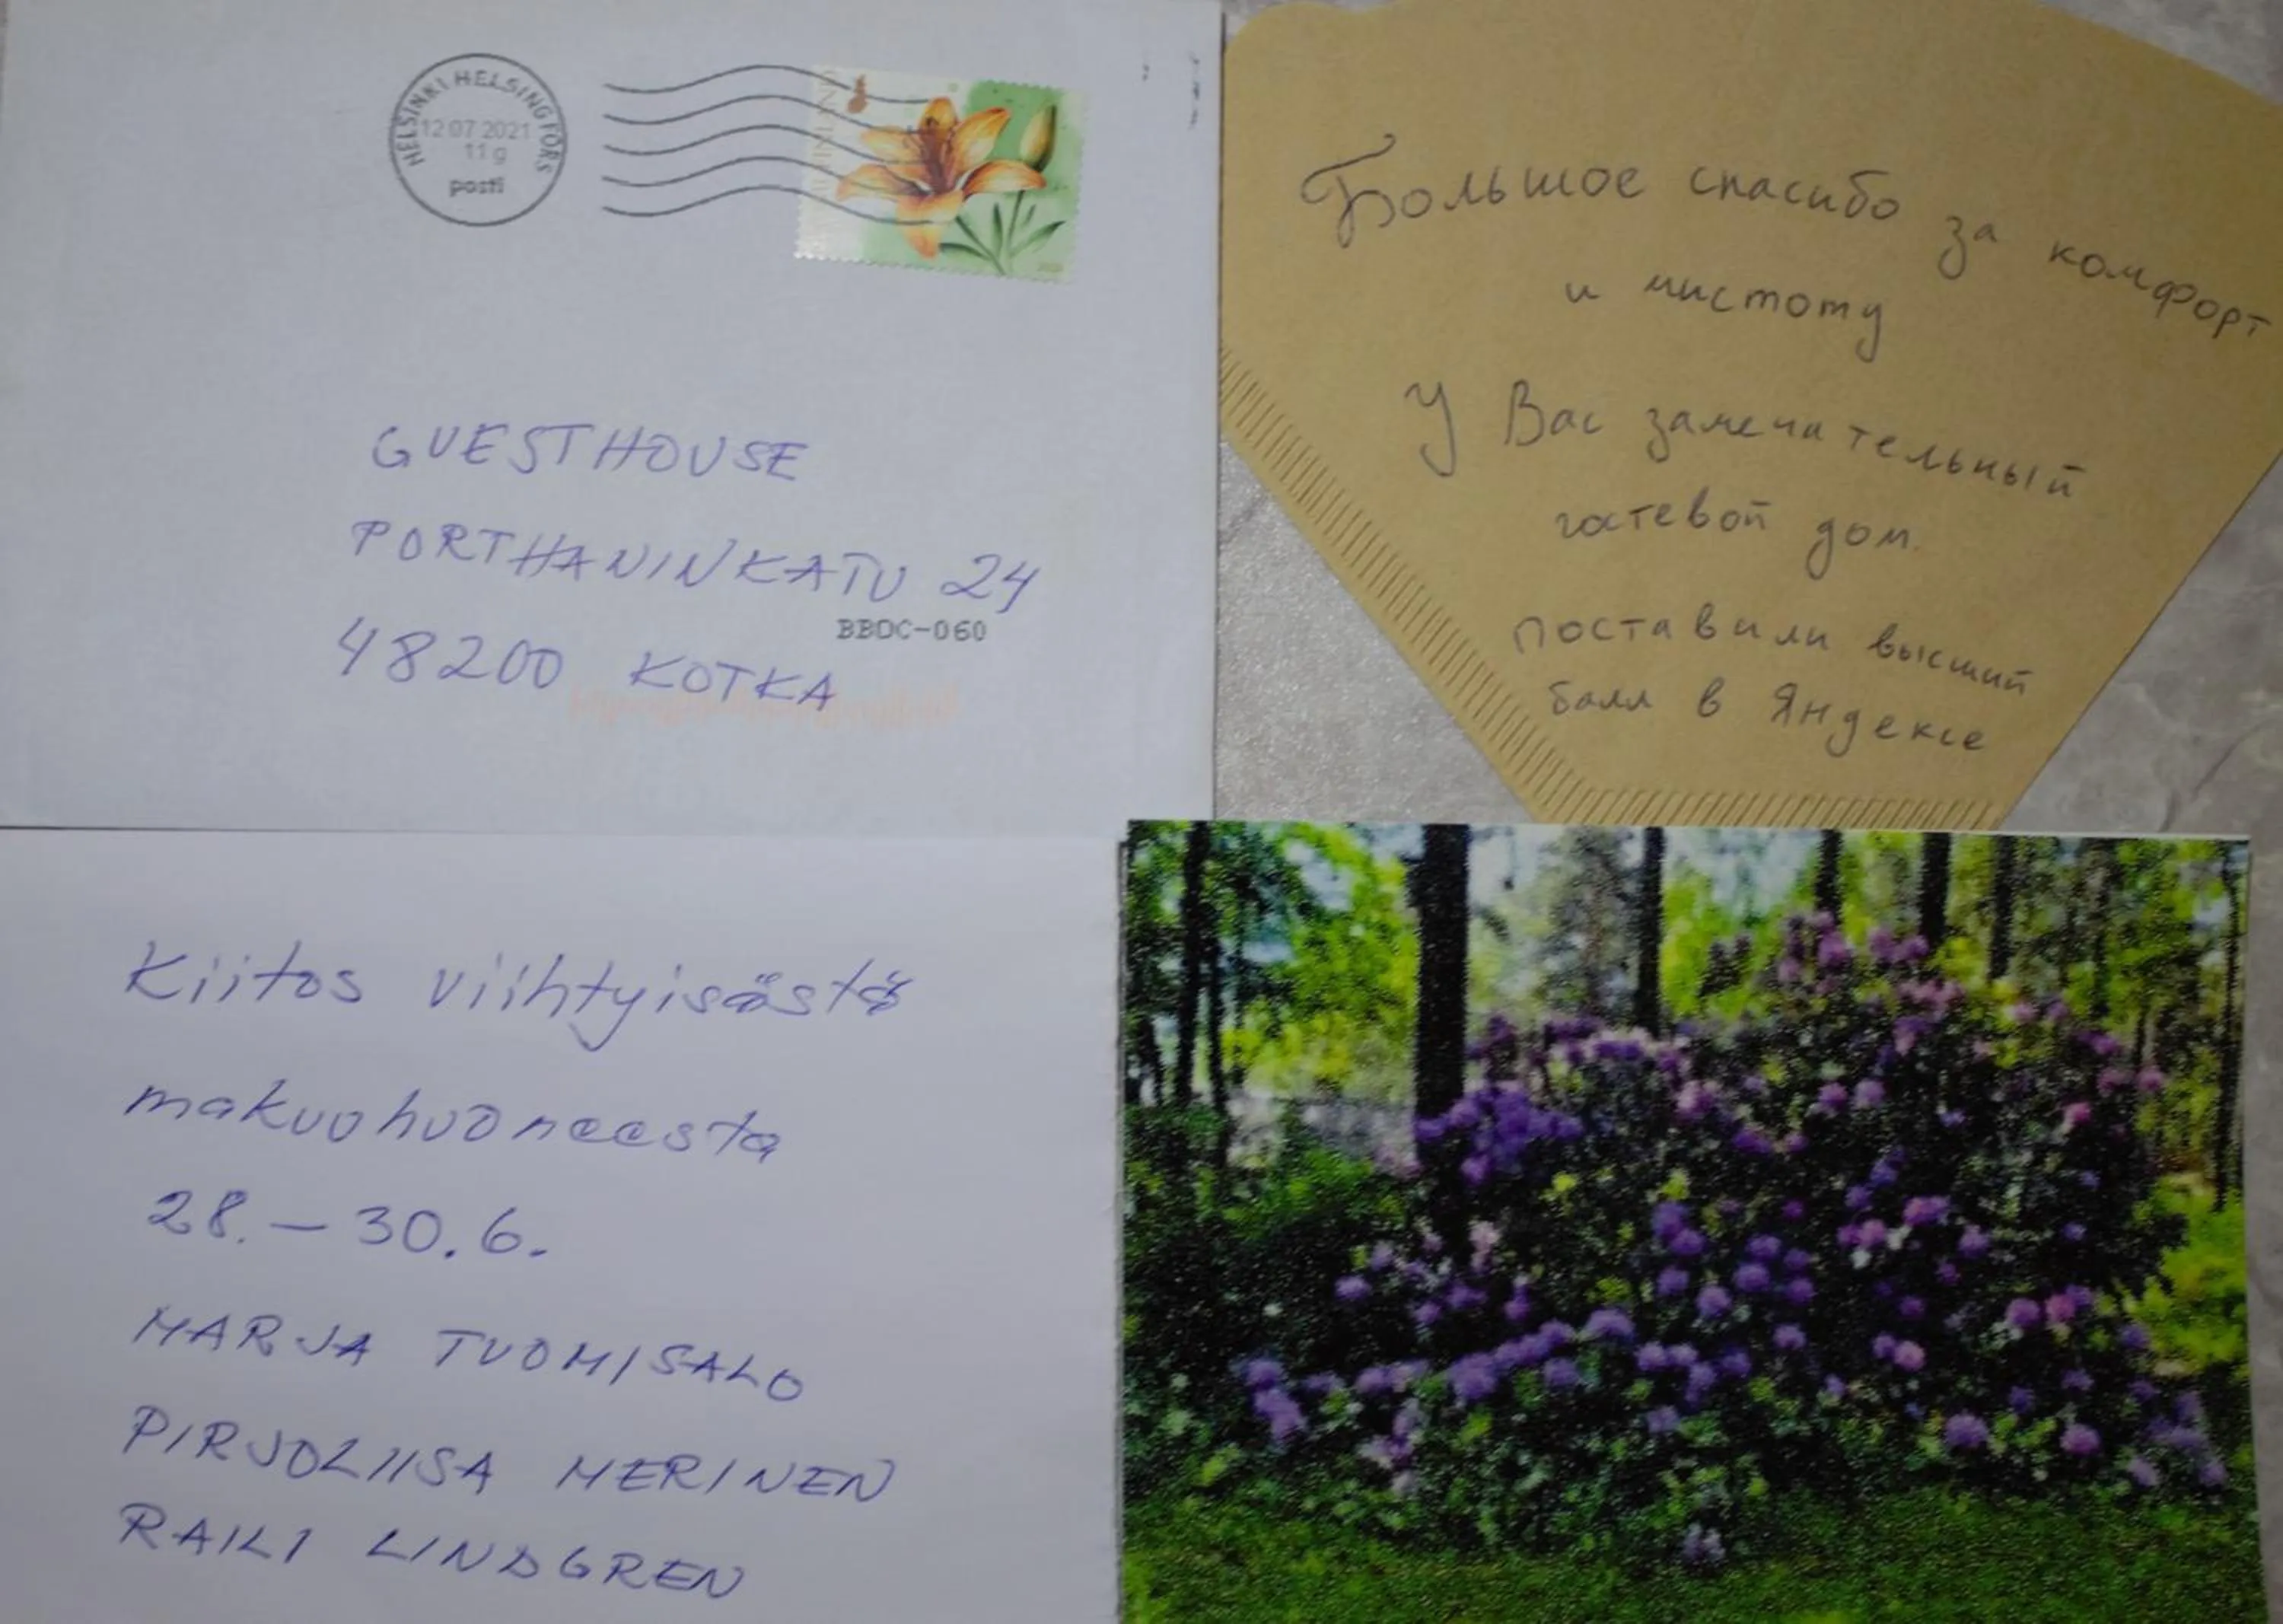 HELSINKI HELSINGFORS
12 07 2021
11 g
posti
GUESTHOUSE
PORTHANINKATU 24
BBDC-060
48200 KOTKA
Большое спасибо за комфорт
и чистоту
У Вас замечательный
гостевой дом.
поставили высший
балл в Яндексе
Kiitos viihtyisästä
makuuhuoneesta
28. – 30.6.
MARJA TUOMISALO
PIRJOLIISA MERINEN
RAILI LINDGREN